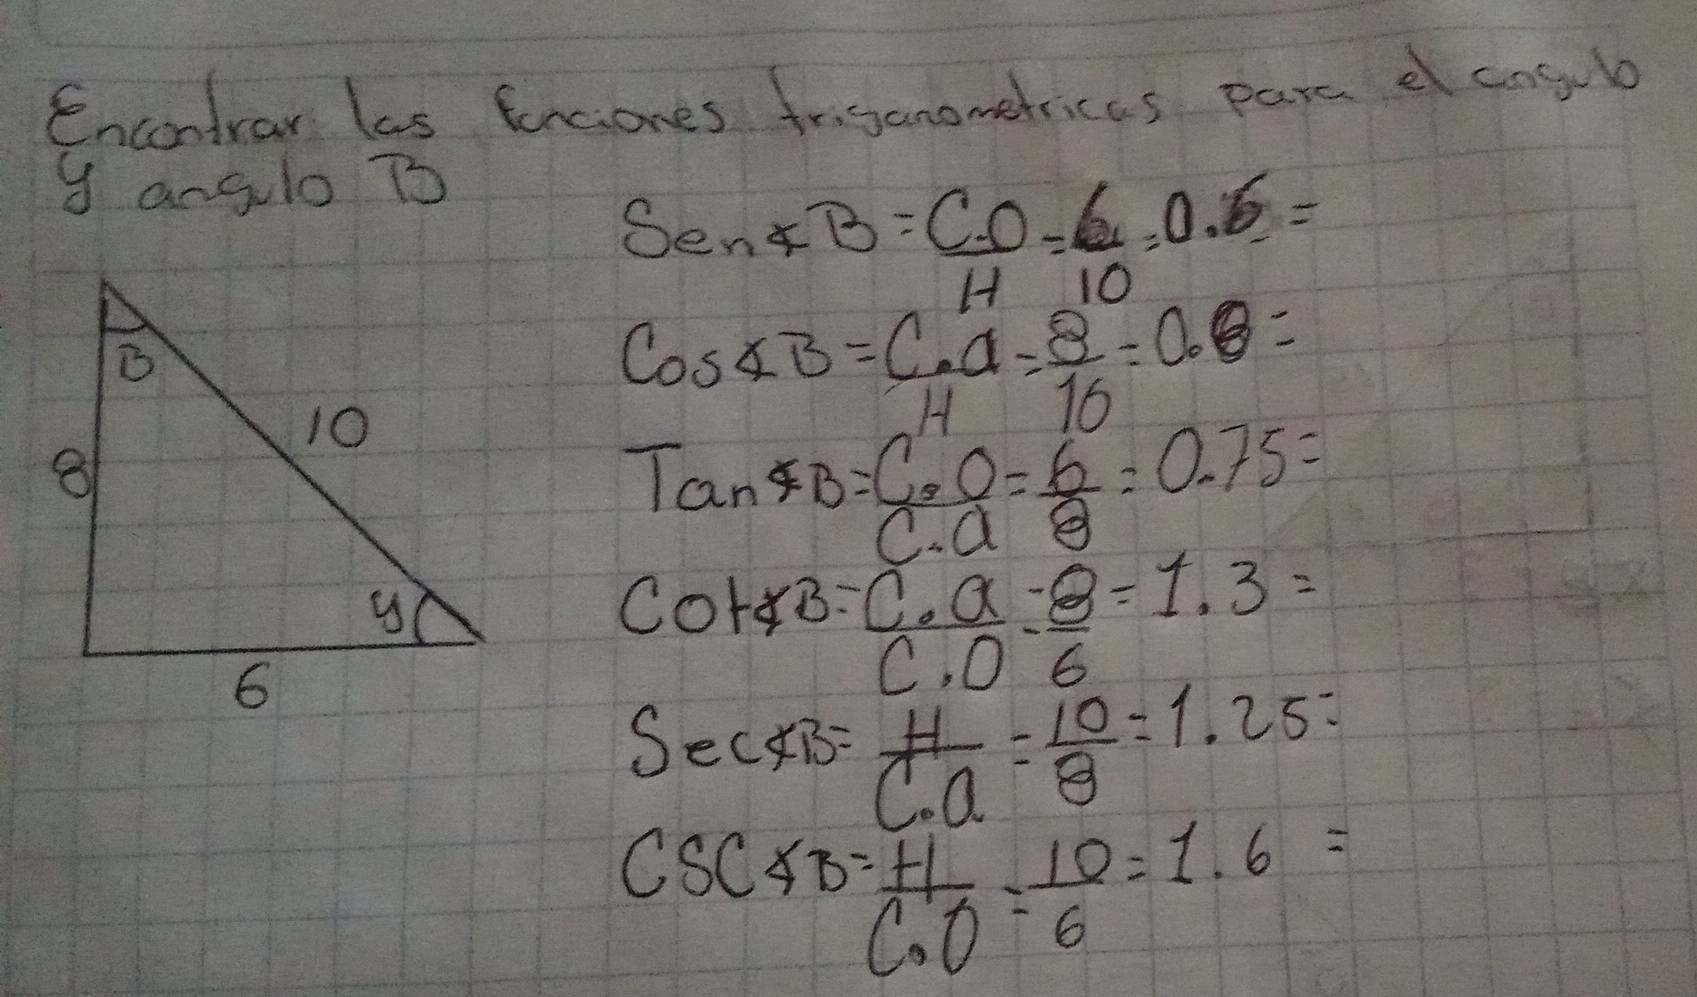 Encontrar las funciones trigonometricas para el angulo
y angulo B
Sen∡B=C.O/H=6/10=0.6=
Cos∡B=C.a/H=8/10=0.8=
Tan∡B=C.O/C.a=6/8=0.75=
Cot∡B=C.a/C.O=8/6=1.3=
Sec∡B=H/C.a=10/8=1.25=
CSC∡B=H/C.O=10/6=1.6=
B
10
8
y
6